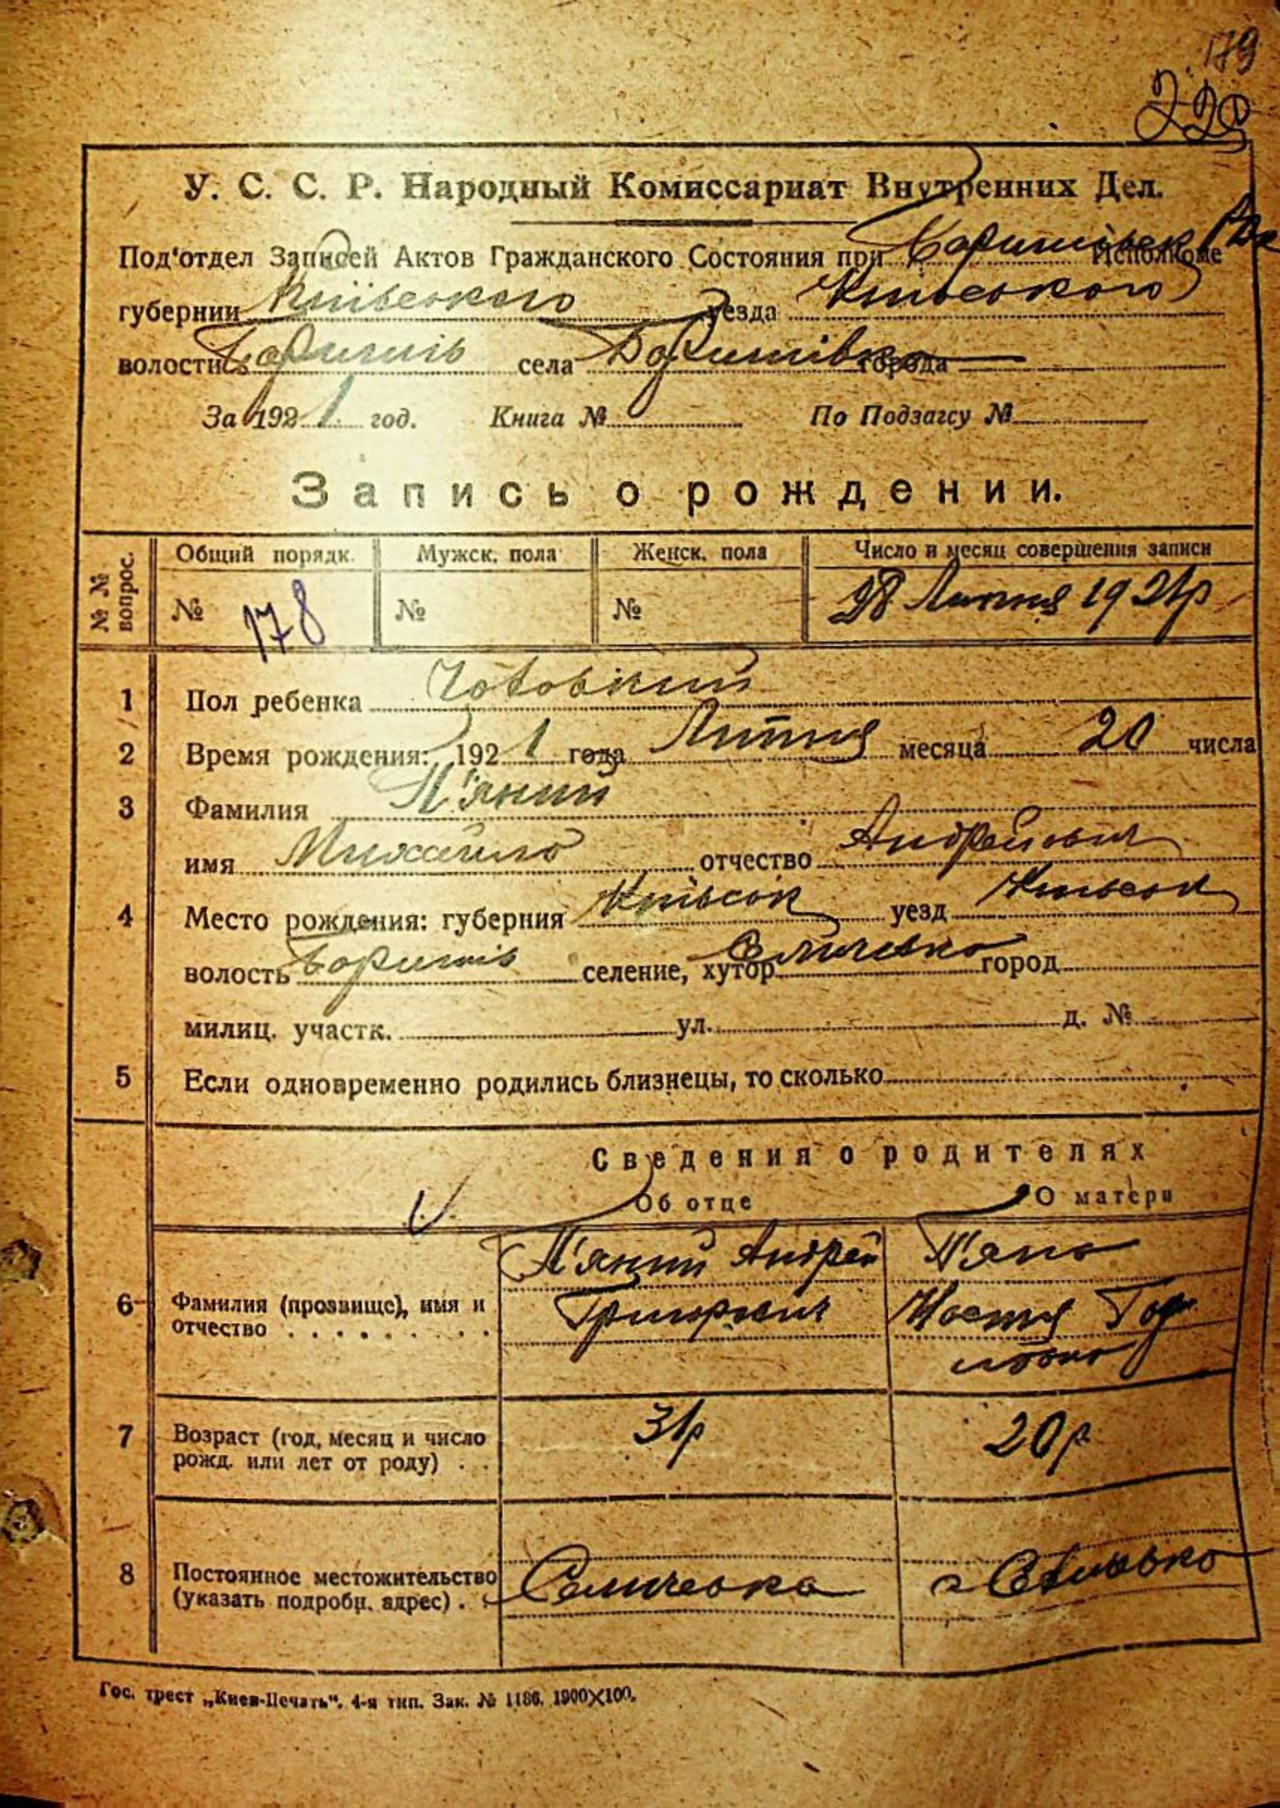 179
220
У. С. С. Р. Народный Комиссариат Внутренних Дел.
Под'отдел Записей Актов Гражданского Состояния при Исполкоме
губернии Київського уезда Київського
волости села города
За 1921 год. Книга № По Подзагсу №
Запись о рождении.
№№ вопрос. Общий порядк. Мужск. пола Женск. пола Число и месяц совершения записи
№ 178 № № 28 Липня 1921р
1 Пол ребенка Чоловічий
2 Время рождения: 1921 года Липня месяца 20 числа
3 Фамилия П'яний
имя Михайло отчество Андрейович
4 Место рождения: губерния Київськ уезд Київськ
волость селение, хутор город
милиц. участк. ул. д. №
5 Если одновременно родились близнецы, то сколько
Сведения о родителях
Об отце О матери
П'яний Андрей П'яна
6 Фамилия (прозвище), имя и отчество Григорович Настя
7 Возраст (год, месяц и число рожд. или лет от роду) 31р 20р
8 Постоянное местожительство (указать подробн. адрес)
Гос. трест „Киев-Печать". 4-я тип. Зак. № 1186. 1900X100.